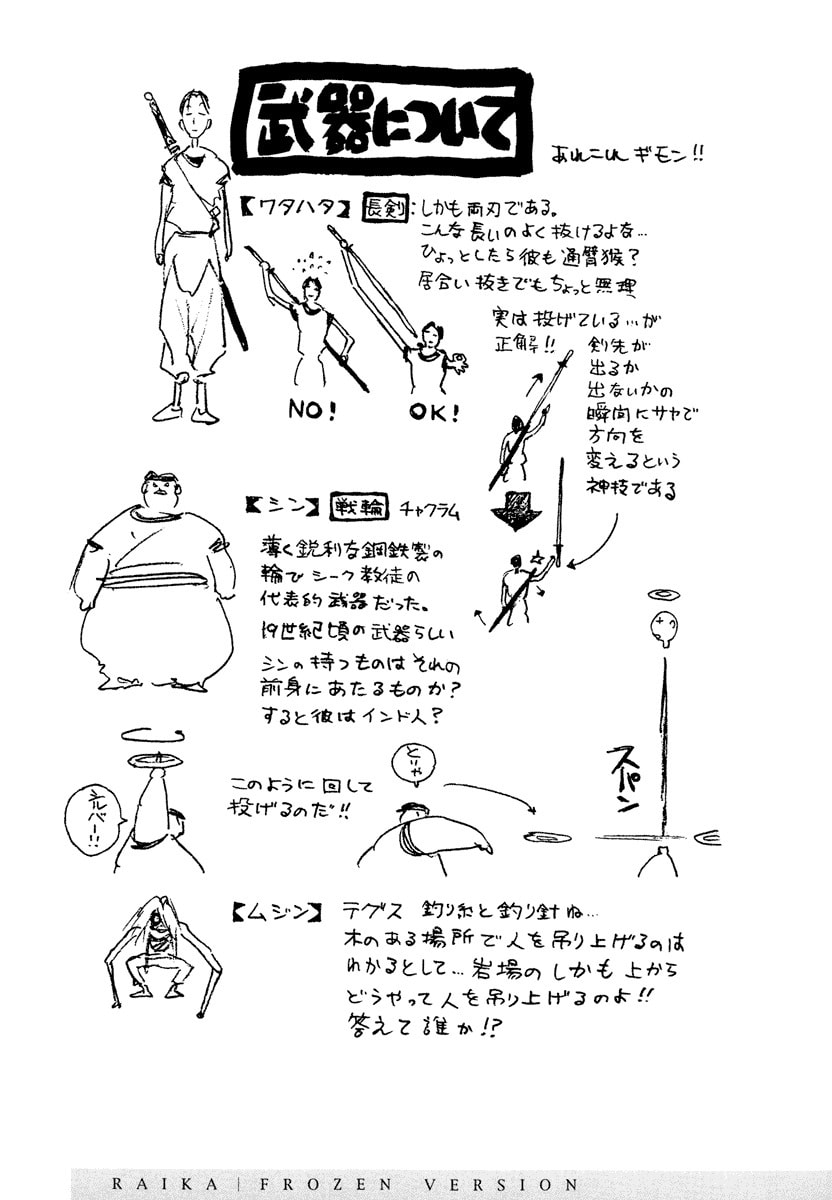 武器について
あれこれ ギモン!!
【ワタハタ】 長剣:しかも両刃である。
こんな長いのよく抜けるよな…
ひょっとしたら彼も通臂猴?
居合い抜きでもちょっと無理
NO!
OK!
実は投げている…が
正解!!
剣先が
出るか
出ないかの
瞬間にサヤで
方向を
変えるという
神技である
【シン】 戦輪 チャクラム
薄く鋭利な鋼鉄製の
輪で シーク教徒の
代表的武器だった。
19世紀頃の武器らしい
シンの持つものはそれの
前身にあたるものか?
すると彼はインド人?
シルバー!!
このように回して
投げるのだ!!
とりゃ
スパン
【ムジン】 テグス 釣り糸と釣り針ね…
木のある場所で人を吊り上げるのは
わかるとして…岩場のしかも上から
どうやって人を吊り上げるのよ!!
答えて誰か!?
RAIKA | FROZEN VERSION